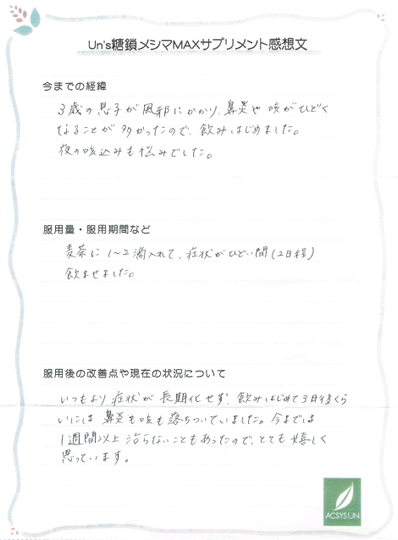 Un's糖鎖メシマMAXサプリメント感想文
今までの経緯
3歳の息子が風邪にかかり、鼻炎や咳がひどく
なることが多かったので、飲みはじめました。
夜の咳込みも悩みでした。
服用量・服用期間など
麦茶に1〜2滴入れて、症状がひどい間(2日程)
飲ませました。
服用後の改善点や現在の状況について
いつもより症状が長期化せず、飲みはじめて3日後くら
いには鼻炎も咳も落ちついていました。今までは
1週間以上治らないこともあったので、とても嬉しく
思っています。
ACSYS UN